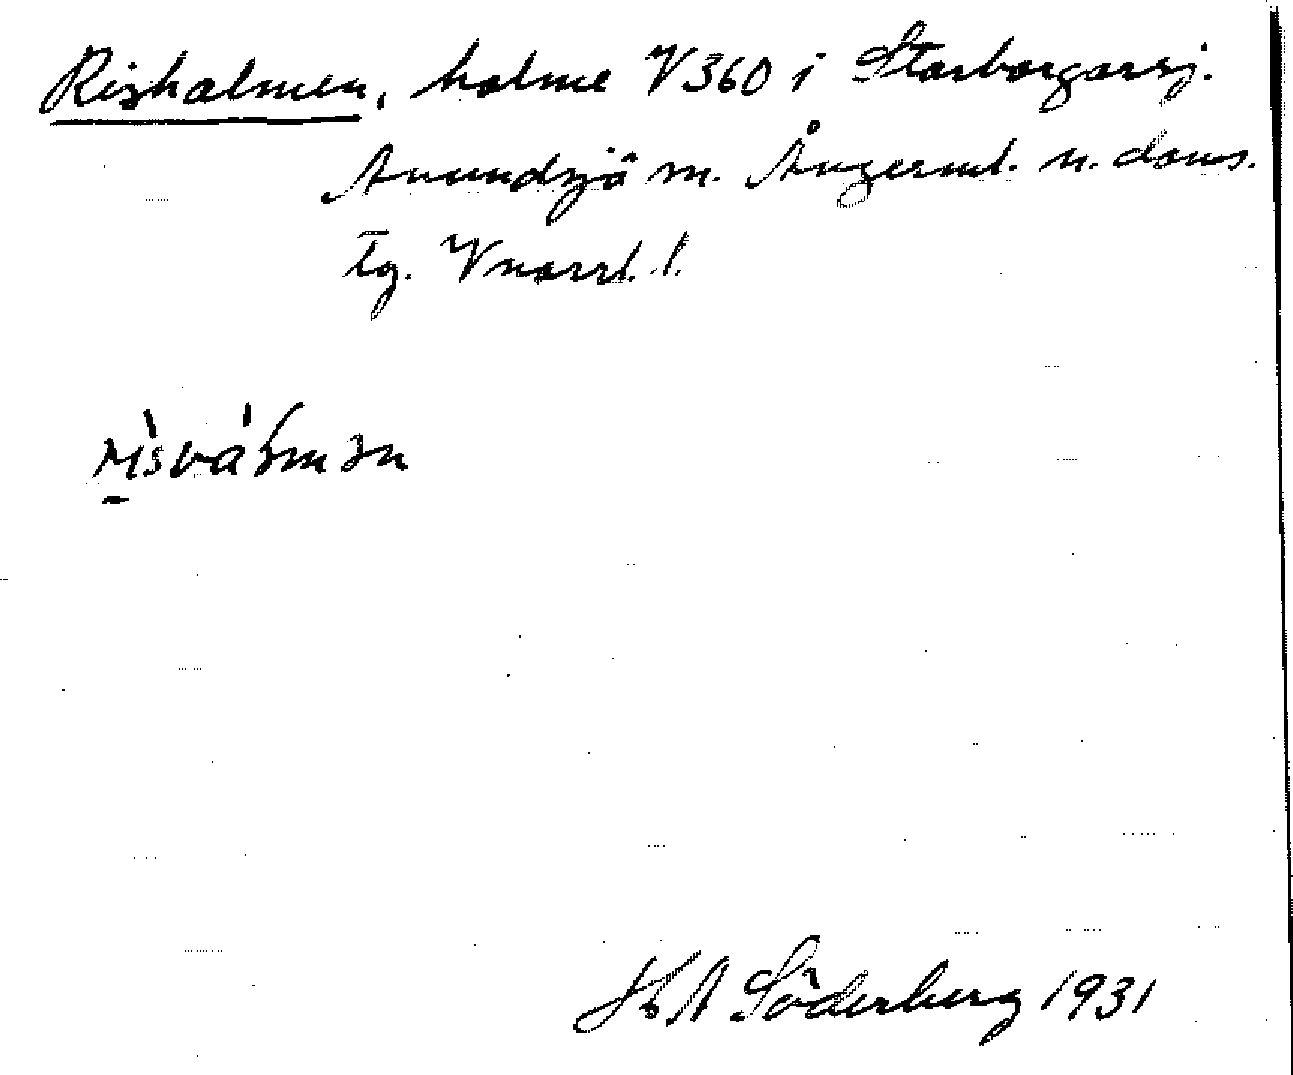 Risholmen, holme V360 i Storborgarsj.
Anundsjö sn. Ångerml. n. doms.
Tg. Vnorrl. l.
K A Söderberg 1931